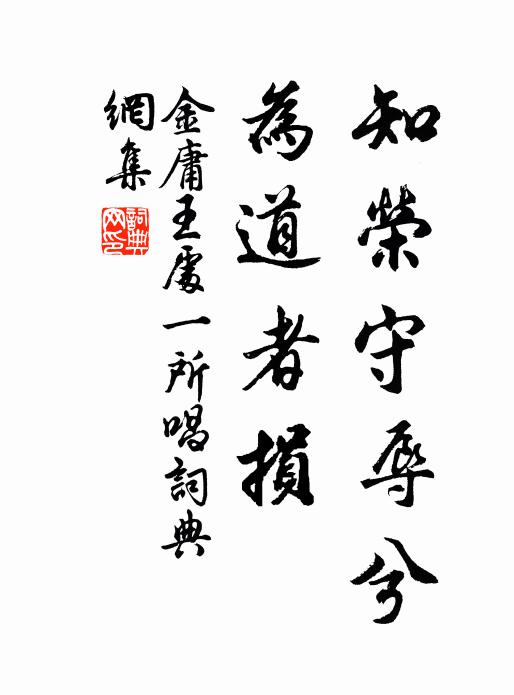 知榮守辱兮
為道者損
金庸王處一所唱詞典
網集
詞典
网印